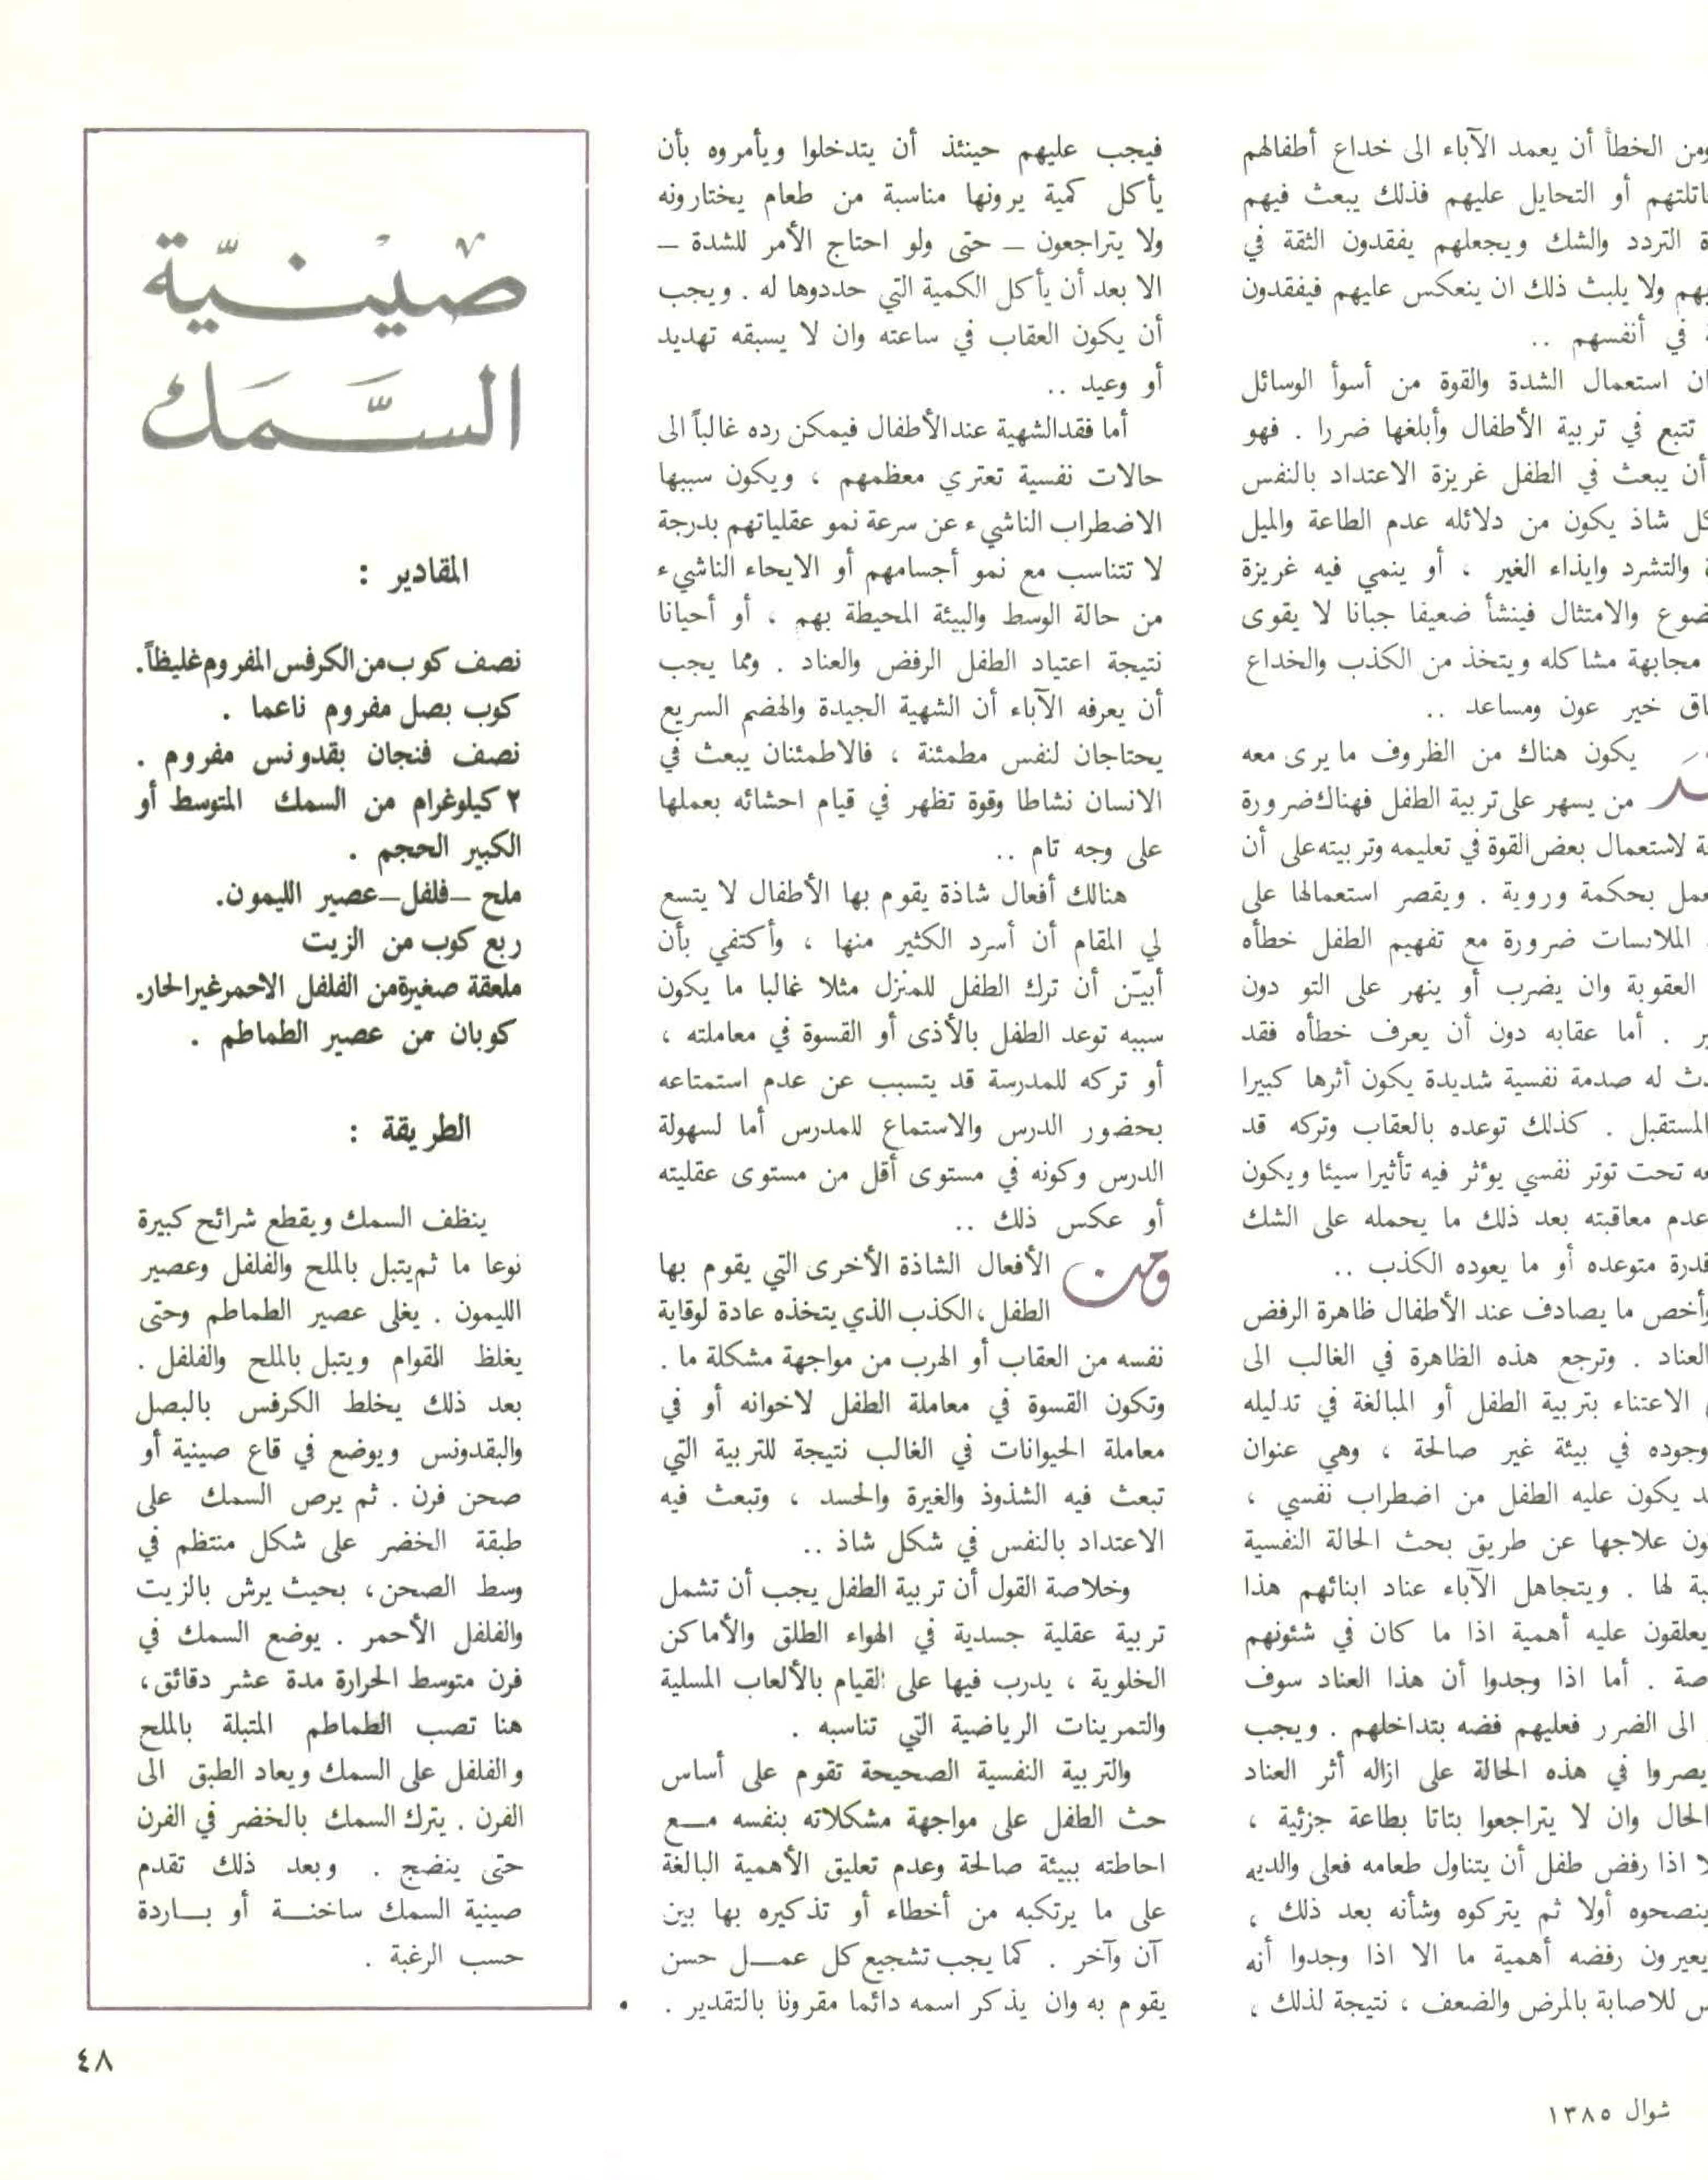 ومن الخطأ أن يعمد الآباء الى خداع أطفالهم
أو التحايل عليهم فذلك يبعث فيهم
التردد والشك ويجعلهم يفقدون الثقة في
ولا يلبث ذلك ان ينعكس عليهم فيفقدون
في أنفسهم ..
استعمال الشدة والقوة من أسوأ الوسائل
تتبع في تربية الأطفال وأبلغها ضررا . فهو
أن يبعث في الطفل غريزة الاعتداد بالنفس
شاذ يكون من دلائله عدم الطاعة والميل
والتشرد وايذاء الغير ، أو ينمي فيه غريزة
والامتثال فينشأ ضعيفا جبانا لا يقوى
مجابهة مشاكله ويتخذ من الكذب والخداع
خير عون ومساعد ..
يكون هناك من الظروف ما يرى معه
من يسهر على تربية الطفل فهناك ضرورة
لاستعمال بعض القوة في تعليمه وتربيته على أن
بحكمة وروية . ويقصر استعمالها على
الملابسات ضرورة مع تفهيم الطفل خطأه
العقوبة وان يضرب أو ينهر على التو دون
. أما عقابه دون أن يعرف خطأه فقد
له صدمة نفسية شديدة يكون أثرها كبيرا
المستقبل . كذلك توعده بالعقاب وتركه قد
تحت توتر نفسي يؤثر فيه تأثيرا سيئا ويكون
عدم معاقبته بعد ذلك ما يحمله على الشك
قدرة متوعده أو ما يعوده الكذب ..
وأخص ما يصادف عند الأطفال ظاهرة الرفض
العناد . وترجع هذه الظاهرة في الغالب الى
الاعتناء بتربية الطفل أو المبالغة في تدليله
وجوده في بيئة غير صالحة ، وهي عنوان
يكون عليه الطفل من اضطراب نفسي ،
علاجها عن طريق بحث الحالة النفسية
لها . ويتجاهل الآباء عناد ابنائهم هذا
يعلقون عليه أهمية اذا ما كان في شئونهم
. أما اذا وجدوا أن هذا العناد سوف
الى الضرر فعليهم فضه بتداخلهم . ويجب
يصروا في هذه الحالة على ازاله أثر العناد
الحال وان لا يتراجعوا بتاتا بطاعة جزئية ،
اذا رفض طفل أن يتناول طعامه فعلى والديه
ينصحوه أولا ثم يتركوه وشأنه بعد ذلك ،
يعيرون رفضه أهمية ما الا اذا وجدوا أنه
للاصابة بالمرض والضعف ، نتيجة لذلك ،
فيجب عليهم حينئذ أن يتدخلوا ويأمروه بأن
يأكل كمية يرونها مناسبة من طعام يختارونه
ولا يتراجعون – حتى ولو احتاج الأمر للشدة –
الا بعد أن يأكل الكمية التي حددوها له . ويجب
أن يكون العقاب في ساعته وان لا يسبقه تهديد
أو وعيد ..
أما فقد الشهية عند الأطفال فيمكن رده غالباً الى
حالات نفسية تعتري معظمهم ، ويكون سببها
الاضطراب الناشيء عن سرعة نمو عقلياتهم بدرجة
لا تتناسب مع نمو أجسامهم أو الايحاء الناشيء
من حالة الوسط والبيئة المحيطة بهم ، أو أحيانا
نتيجة اعتياد الطفل الرفض والعناد . ومما يجب
أن يعرفه الآباء أن الشهية الجيدة والهضم السريع
يحتاجان لنفس مطمئنة ، فالاطمئنان يبعث في
الانسان نشاطا وقوة تظهر في قيام احشائه بعملها
على وجه تام ..
هنالك أفعال شاذة يقوم بها الأطفال لا يتسع
لي المقام أن أسرد الكثير منها ، وأكتفي بأن
أبيّن أن ترك الطفل للمنزل مثلا غالبا ما يكون
سببه توعد الطفل بالأذى أو القسوة في معاملته ،
أو تركه للمدرسة قد يتسبب عن عدم استمتاعه
بحضور الدرس والاستماع للمدرس أما لسهولة
الدرس وكونه في مستوى أقل من مستوى عقليته
أو عكس ذلك ..
ومن الأفعال الشاذة الأخرى التي يقوم بها
الطفل ، الكذب الذي يتخذه عادة لوقاية
نفسه من العقاب أو الهرب من مواجهة مشكلة ما .
وتكون القسوة في معاملة الطفل لاخوانه أو في
معاملة الحيوانات في الغالب نتيجة للتربية التي
تبعث فيه الشذوذ والغيرة والحسد ، وتبعث فيه
الاعتداد بالنفس في شكل شاذ ..
وخلاصة القول أن تربية الطفل يجب أن تشمل
تربية عقلية جسدية في الهواء الطلق والأماكن
الخلوية ، يدرب فيها على القيام بالألعاب المسلية
والتمرينات الرياضية التي تناسبه .
والتربية النفسية الصحيحة تقوم على أساس
حث الطفل على مواجهة مشكلاته بنفسه مـع
احاطته ببيئة صالحة وعدم تعليق الأهمية البالغة
على ما يرتكبه من أخطاء أو تذكيره بها بين
آن وآخر . كما يجب تشجيع كل عمـل حسن
يقوم به وان يذكر اسمه دائما مقرونا بالتقدير . •
صينيّة
السَّمَك
المقادير :
نصف كوب من الكرفس المفروم غليظاً.
كوب بصل مفروم ناعما .
نصف فنجان بقدونس مفروم .
٢ كيلوغرام من السمك المتوسط أو
الكبير الحجم .
ملح –فلفل–عصير الليمون.
ربع كوب من الزيت
ملعقة صغيرة من الفلفل الاحمر غير الحار.
كوبان من عصير الطماطم .
الطريقة :
ينظف السمك ويقطع شرائح كبيرة
نوعا ما ثم يتبل بالملح والفلفل وعصير
الليمون . يغلى عصير الطماطم وحتى
يغلظ القوام ويتبل بالملح والفلفل .
بعد ذلك يخلط الكرفس بالبصل
والبقدونس ويوضع في قاع صينية أو
صحن فرن . ثم يرص السمك على
طبقة الخضر على شكل منتظم في
وسط الصحن، بحيث يرش بالزيت
والفلفل الأحمر . يوضع السمك في
فرن متوسط الحرارة مدة عشر دقائق،
هنا تصب الطماطم المتبلة بالملح
والفلفل على السمك ويعاد الطبق الى
الفرن . يترك السمك بالخضر في الفرن
حتى ينضج . وبعد ذلك تقدم
صينية السمك ساخنـة أو بـاردة
حسب الرغبة .
٤٨
شوال ١٣٨٥